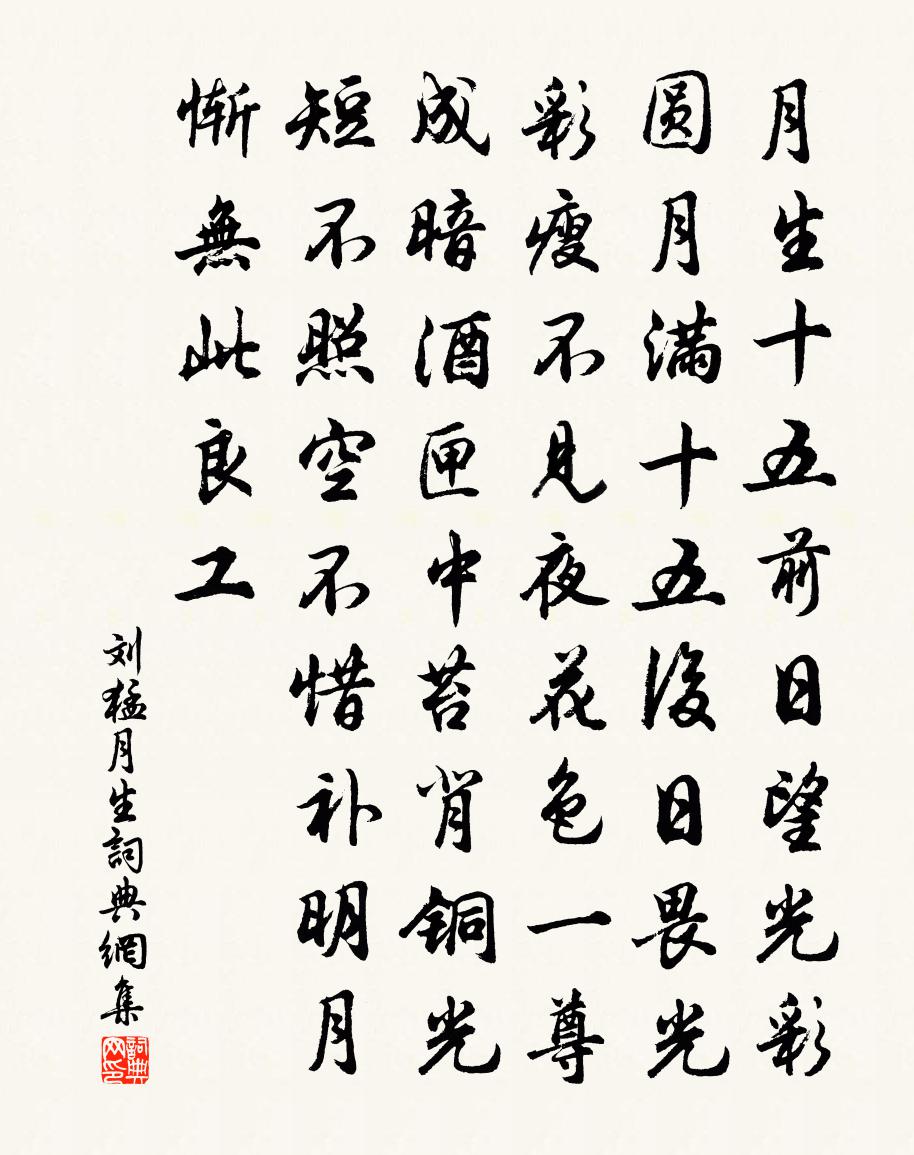 月生十五前日望光彩
圆月滿十五後日畏光
彩瘦不見夜花色一尊
成暗酒匣中苔背铜光
短不照空不惜补明月
惭無此良工
刘猛月生詞典網集
詞典网印